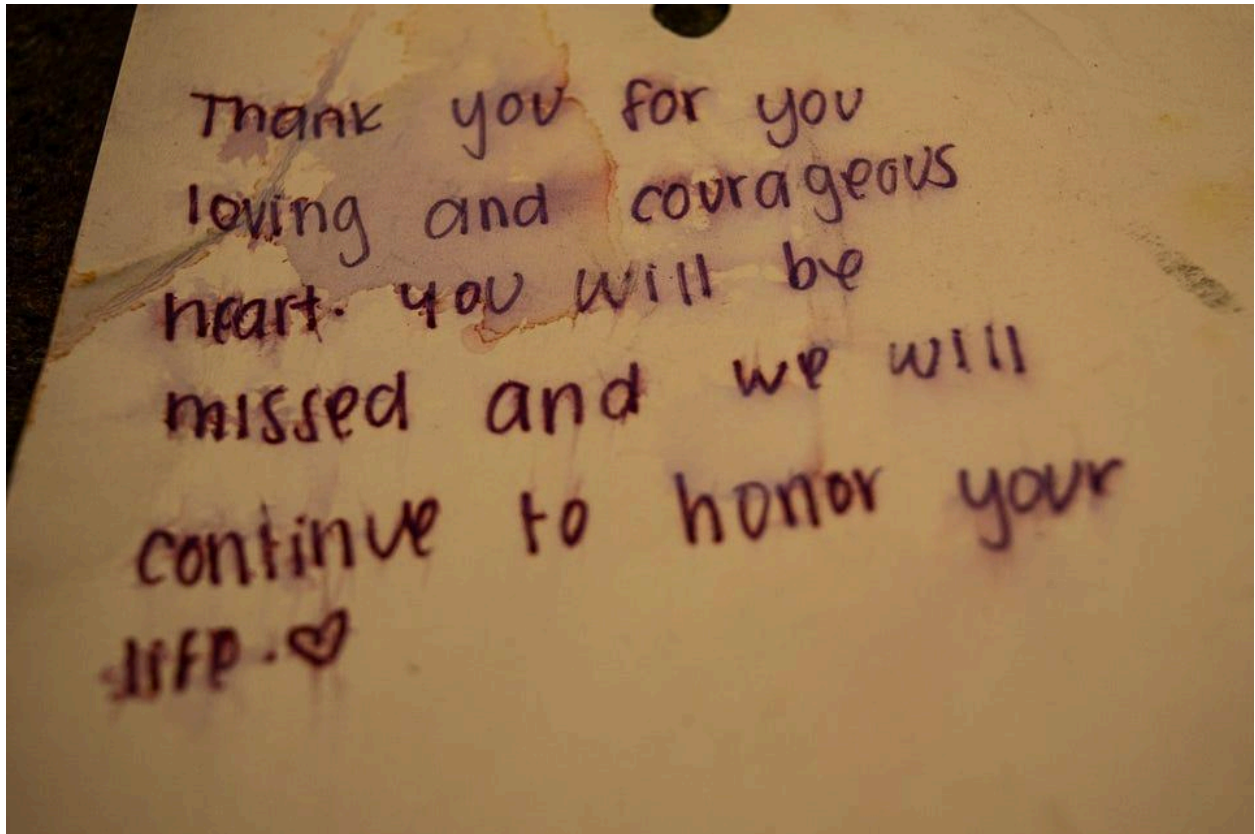 Thank you for you
loving and courageous
heart. You will be
missed and we will
continue to honor your
life. ♡